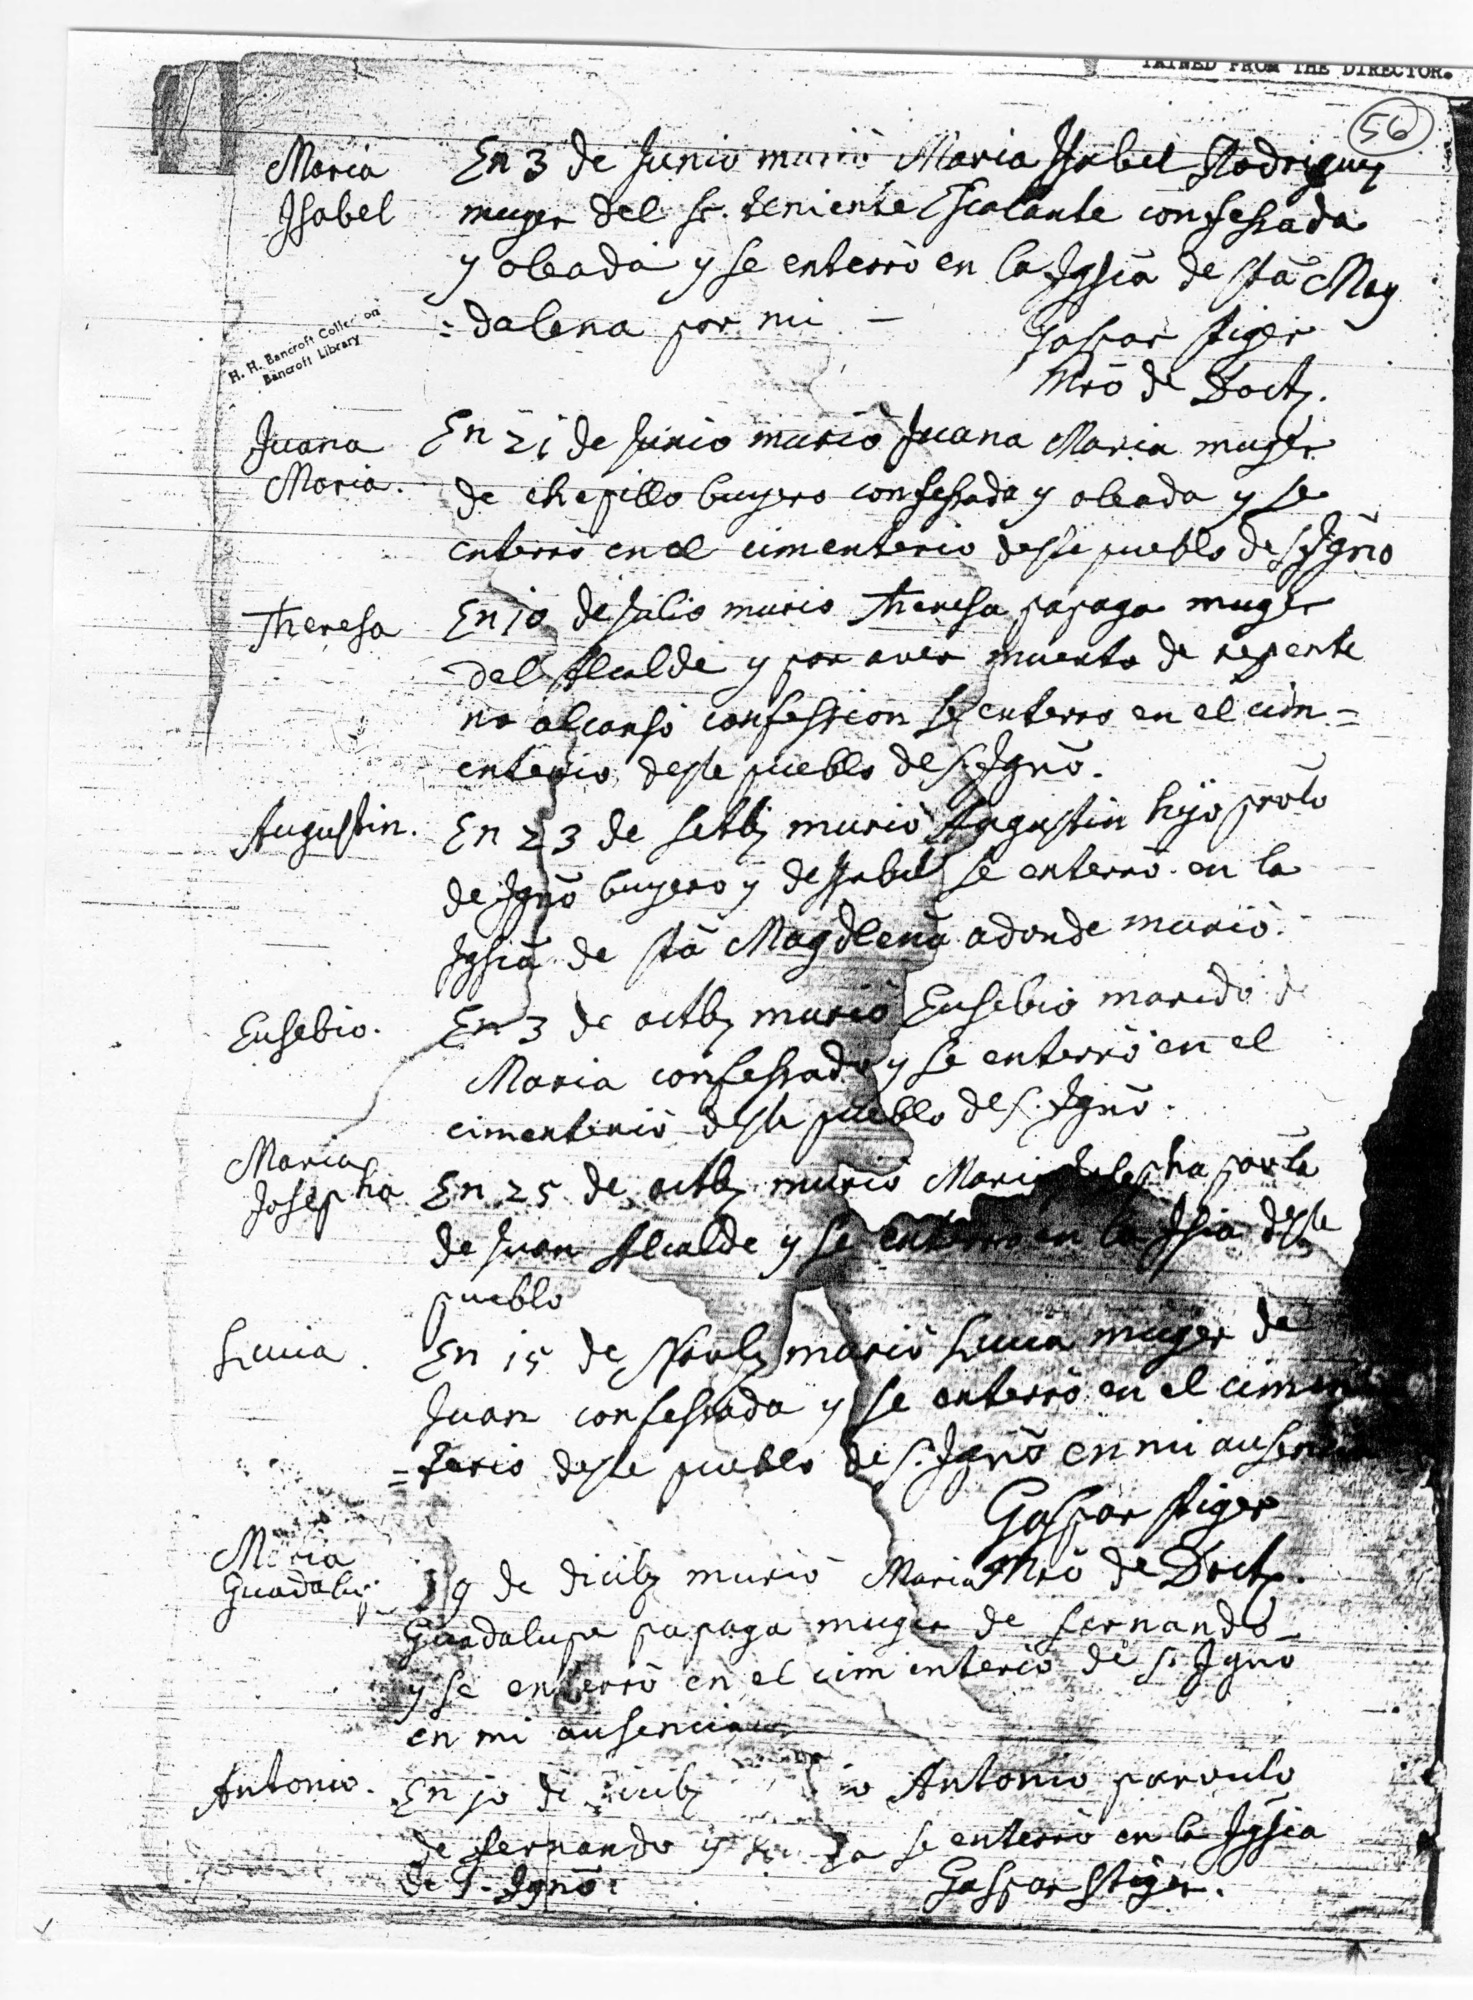 TAINED FROM THE DIRECTOR.
56
Maria
Isabel
En 3 de Junio murió Maria Isabel Rodriguez
muger del Sr. Teniente Escalante confessada
y oleada y se enterró en la Igsia de sta Mag
=dalena por mi —
Gaspar Stiger
Mro de Doctr.
H. H. Bancroft Collection
Bancroft Library
Juana
Maria.
En 21 de Junio murió Juana Maria muger
de chepillo buyero confessada y oleada y se
enterró en el cimenterio deste pueblo de S. Igño
Theresa
En 10 de Julio murio Theresa papaga muger
del Alcalde y por aver muerto de repente
no alcansó confession se enterro en el cim=
enterio deste pueblo de S. Igño.
Augustin.
En 23 de Setb murió Augustin hijo prolo
de Igño buyero y de Isabel se enterró en la
Igsia de sta Magdlena adonde murió.
Eusebio.
En 3 de octb murió Eusebio marido de
Maria confessado y se enterró en el
cimenterio deste pueblo de S. Igño.
Maria
Josepha
En 25 de octb murió Maria Josepha
de Juan Alcalde y se enterró en la Igsia deste
pueblo
Lucia.
En 15 de Novb murió Lucia muger de
Juan confessada y se enterró en el cimen
=terio deste pueblo de S. Igño en mi ausencia
Gaspar Stiger
Mro de Doctr.
Maria
Guadalup
9 de dicib murió Maria
Guadalupe papaga muger de fernando
y se enterró en el cimenterio de S. Igño
en mi ausencia
Antonio.
En 10 de dicib Antonio parvulo
de fernando y se enterró en la Igsia
de S. Igño.
Gaspar Stiger.